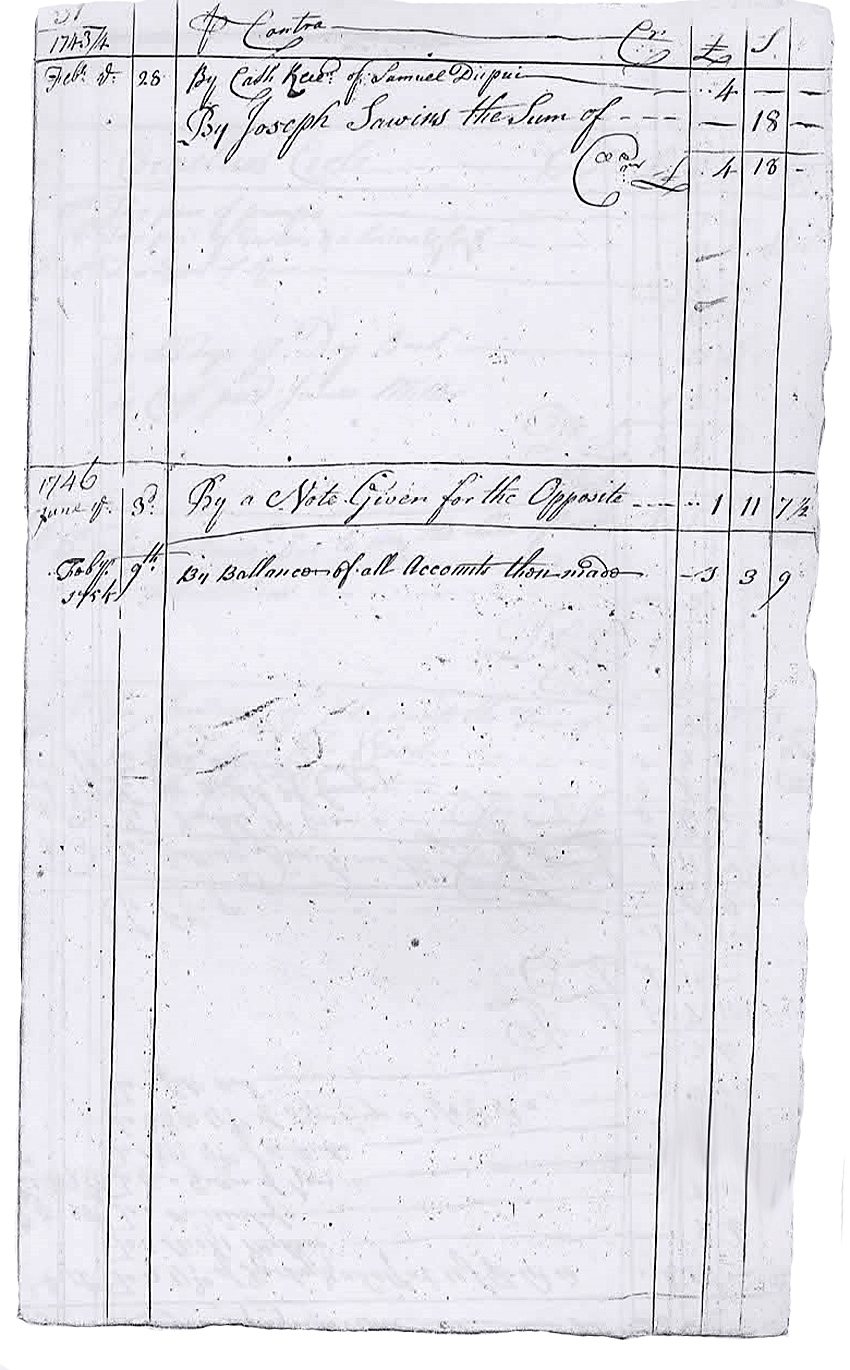 1743/4 ⅌ Contra Cr. £ S.
Feb.ʸ yᵉ 28 By Cash Rece.ᵈ of Samuel Dupui 4 — —
By Joseph Sawins the Sum of — 18 —
£ 4 18 -
1746
June yᵉ 3ᵈ By a Note Given for the Opposite 1 11 7½
Febyʳ 9th By Ballance of all Accounts then made 3 9